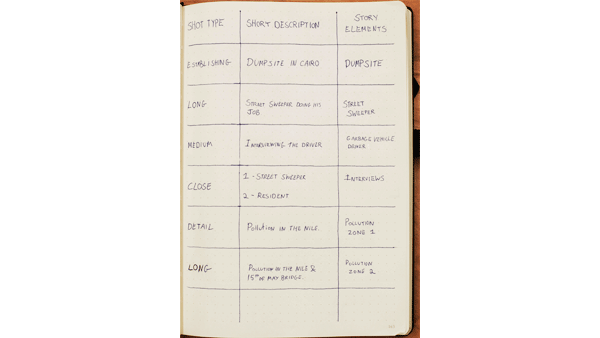 SHOT TYPE
SHORT DESCRIPTION
STORY
ELEMENTS
ESTABLISHING
DUMPSITE IN CAIRO
DUMPSITE
LONG
STREET SWEEPER DOING HIS
JOB
STREET
SWEEPER
MEDIUM
INTERVIEWING THE DRIVER
GARBAGE VEHICLE
DRIVER
CLOSE
1 - STREET SWEEPER
2 - RESIDENT
INTERVIEWS
DETAIL
POLLUTION IN THE NILE.
POLLUTION
ZONE 1
LONG
POLLUTION IN THE NILE &
15th OF MAY BRIDGE.
POLLUTION
ZONE 2